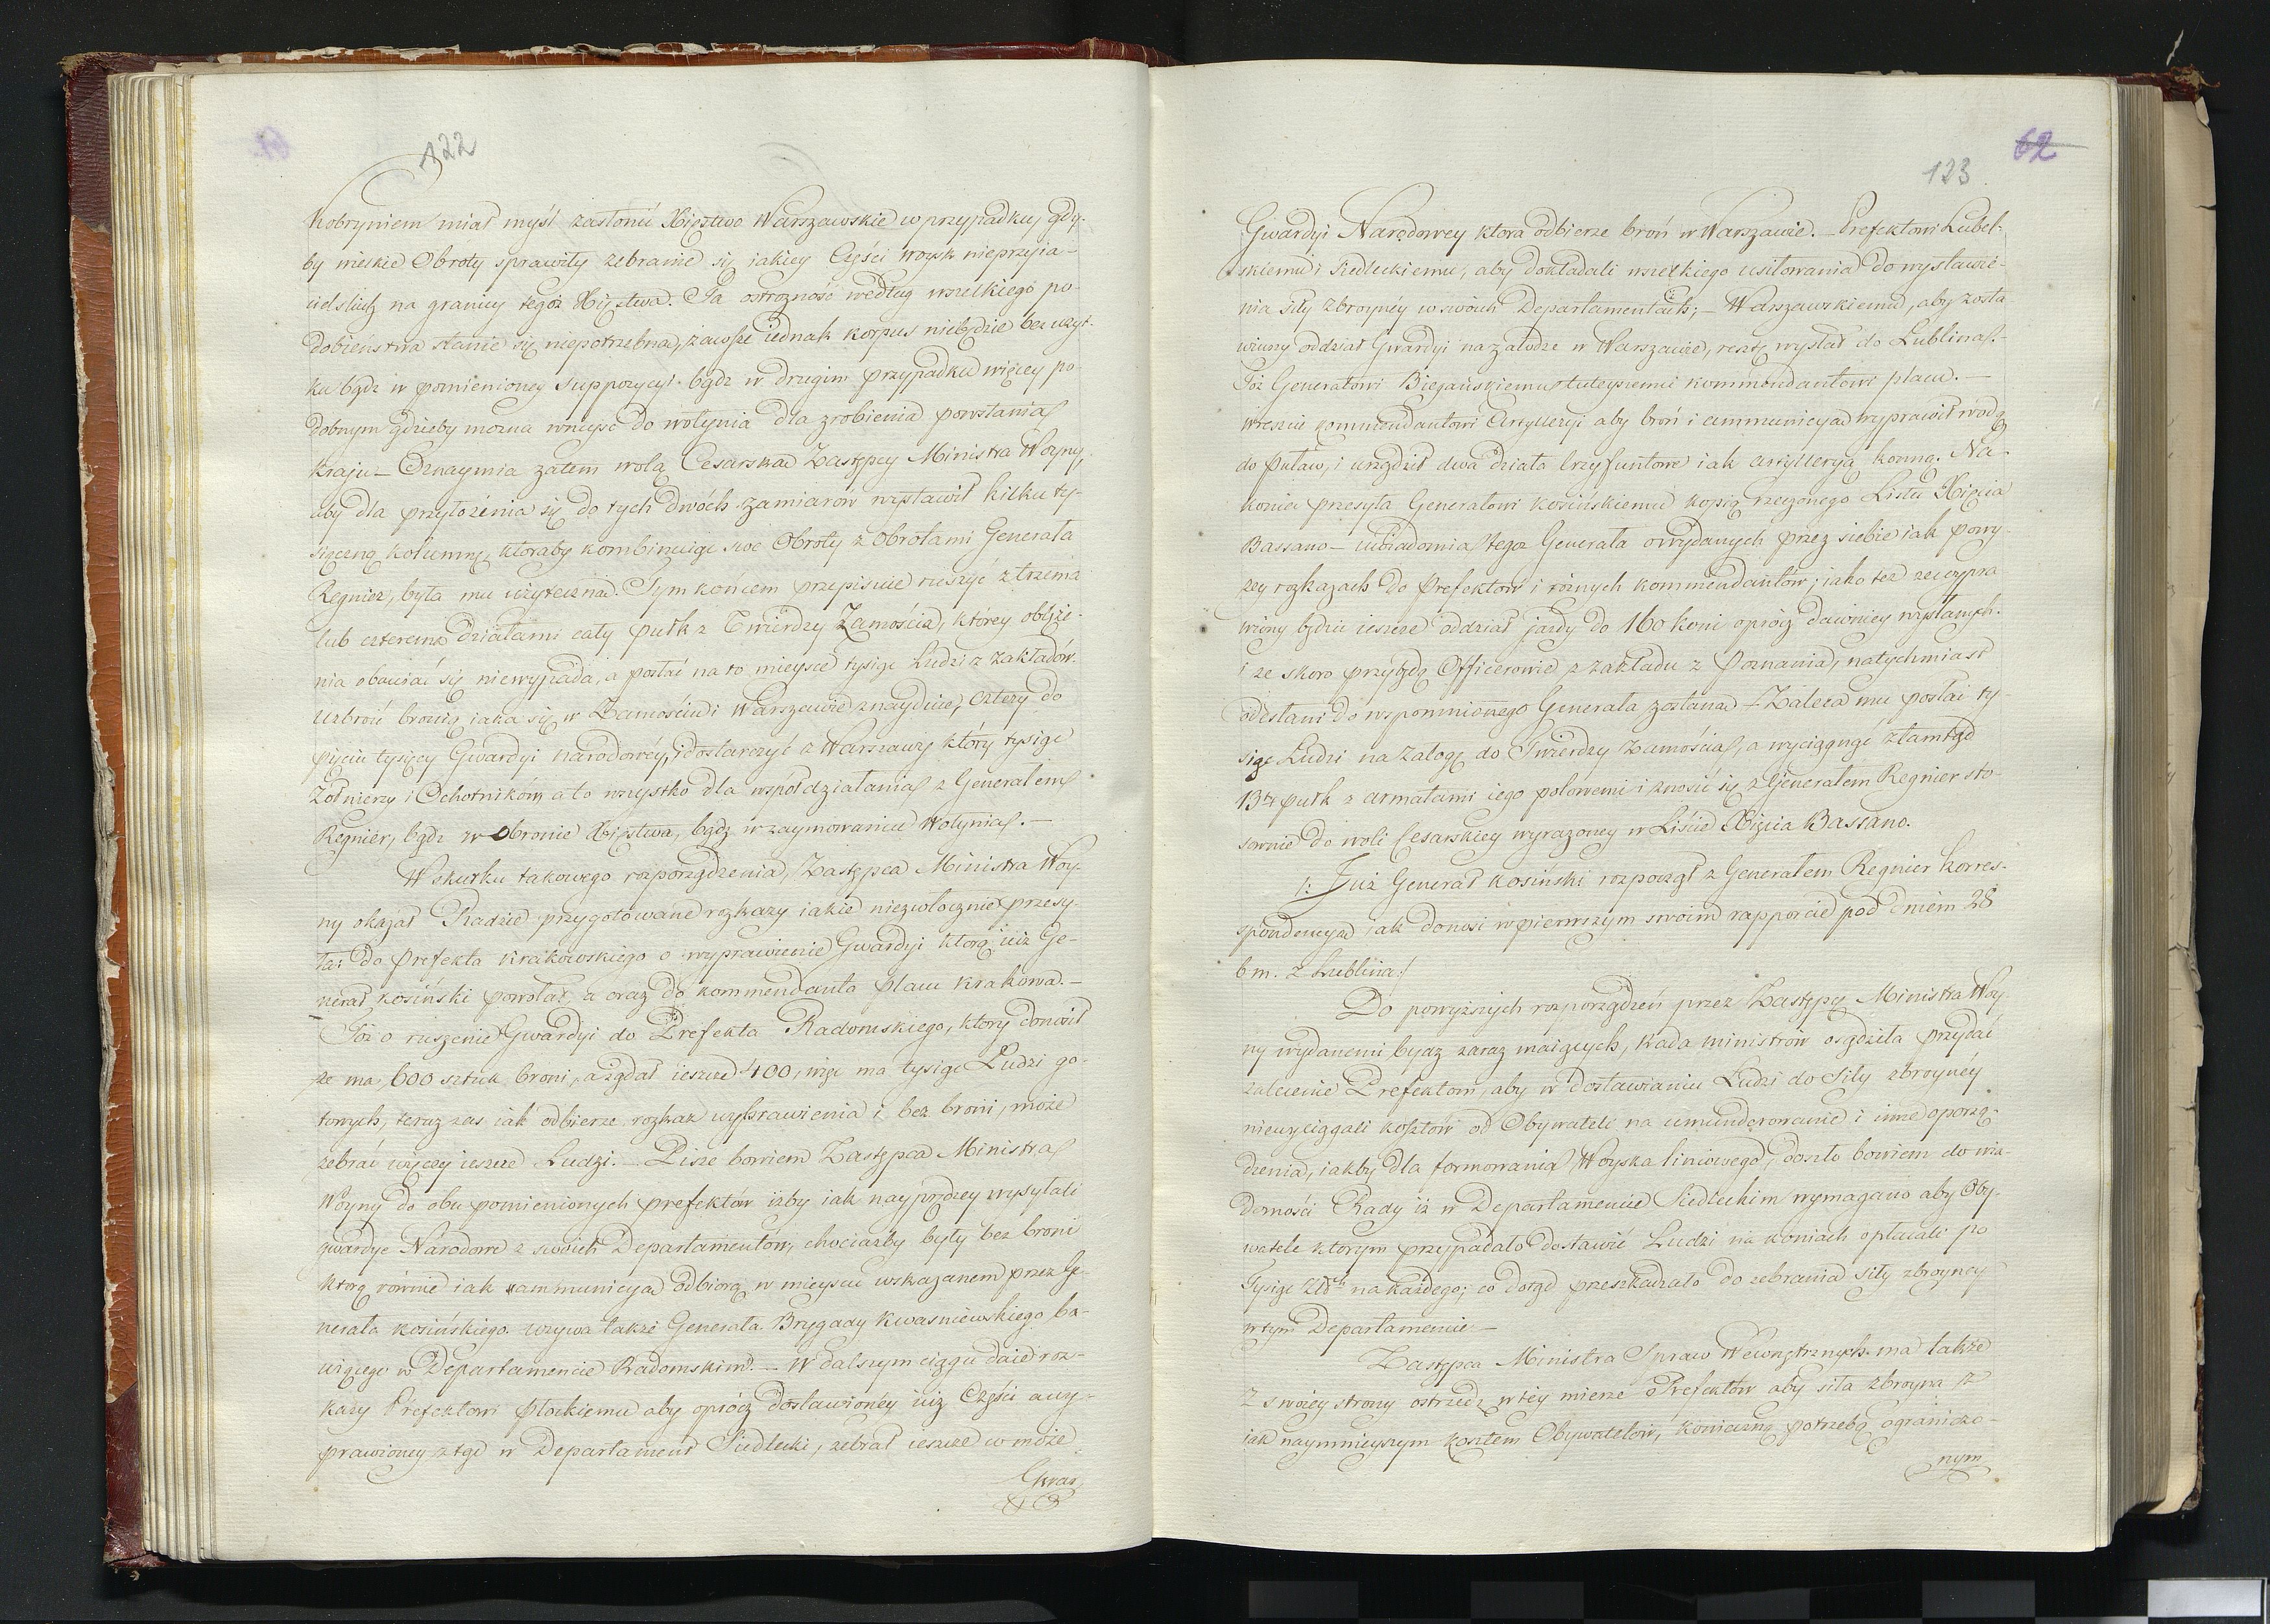 122
Kobryniem miał myśl zasłonić Xięstwo Warszawskie w przypadku, gdy-
by wielkie Obroty sprawiły zebranie się iakiey Części woysk nieprzyia-
cielskich na granicy tegoż Xięstwa. Ta ostrożność według wszelkiego po-
dobieństwa stanie się niepotrzebna, zawsze iednak korpus niebędzie bez użyt-
ku bądz w pomienioney suppozycyi bądz w drugim przypadku więcey po-
dobnym gdzieby można wniyść do Wołynia dla zrobienia powstania
kraju — Oznaymia zatem wolą Cesarską Zastępcy Ministra Woyny,
aby dla przyłożenia się do tych dwóch zamiarów wystawił kilku ty-
siączną kolumnę, ktoraby kombinuiąc swe Obroty z obrotami Generała
Regnier, była mu użyteczna. Tym końcem przepisuie ruszyć z trzema
lub czterema działami cały pułk z Twierdzy Zamościa, którey oblęże-
nia obawiać się niewypada, a posłać na to mieysce tysiąc Ludzi z zakładów.
Uzbroić bronią iaka się w Zamościu i Warszawie znayduie, cztery do
pięciu tysięcy Gwardyi narodowéy, i dostarczyć z Warszawy który tysiąc
Żołnierzy i Ochotników a to wszystko dla współdziałania z Generałem
Regnier, bądz w Obronie Xięstwa, bądz w zaymowaniu Wołynia. —
W skutku takowego rozporządzenia, Zastępca Ministra Woy-
ny okazał Radzie przygotowane rozkazy iakie niezwłocznie przesy-
ła: do Prefekta Krakowskiego o wyprawienie Gwardyi którą iuż Ge-
nerał Kosiński powołał, a oraz do kommendanta placu Krakowa. —
Toż o ruszenie Gwardyi do Prefekta Radomskiego, ktory donosił
że ma 600 sztuk broni, a żądał ieszcze 400, więc ma tysiąc Ludzi go-
towych, teraz zas iak odbierze rozkaz wyprawienia i bez broni, może
zebrać więcey ieszcze Ludzi. — Pisze bowiem Zastępca Ministra
Woyny do obu pomienionych prefektów iżby iak nayprędzey wysyłali
gwardye Narodowe z swoich Departamentów, chociażby były bez broni
ktorą równie iak ammunicyą odbiorą w mieyscu wskazanem przez Ge-
nerała Kosińskiego. wzywa także Generała Brygady Kwasniewskiego ba-
wiącego w Departamencie Radomskim. — W dalszym ciągu daie roz-
kazy Prefektowi Płockiemu aby oprócz dostawionéy iuż Części a wy-
prawioney ztąd w Departament Siedlecki, zebrał ieszcze co może
Gwar
62
123
Gwardyi Narodowey ktora odbierze broń w Warszawie. — Prefektowi Lubel-
skiemu i Siedleckiemu, aby dokładali wszelkiego usiłowania do wystawie-
nia siły zbroynéy w swoich Departamentach; — Warszawskiemu, aby zosta-
wiwszy oddział Gwardyi na załodze w Warszawie, resztę wysłał do Lublina. —
Toż Generałowi Biegańskiemu tuteyszemu kommendantowi placu. —
Wreszcie kommendantowi Artylleryi aby broń i ammunicyą wyprawił wodą
do Puław, i urządził dwa działa trzyfuntowe iak artylleryą konną. Na-
koniec przesyła Generałowi Kosińskiemu kopią rzeczonego Listu Xięcia
Bassano — uwiadomia tegoż Generała o wydanych przez siebie iak powy-
żey rozkazach do Prefektów i róznych kommendantów; iako też że wypra-
wiony będzie ieszcze oddział jazdy do 160 koni oprócz dawniey wysłanych.
i że skoro przybędą Officerowie z zakładu z Poznania, natychmiast
odesłani do wspomnionego Generała zostaną — Zaleca mu posłać ty-
siąc Ludzi na załogę do Twierdzy Zamościa, a wyciągnąć ztamtąd
13ty pułk z armatami iego polowemi i znosić się z Generałem Regnier sto-
sownie do woli Cesarskiey wyrażoney w Liście Xięcia Bassano.
/: Już Generał Kosiński rozpoczął z Generałem Regnier korres-
pondencyą iak donosi w pierwszym swoim rapporcie pod dniem 28
b m. z Lublina:/
Do powyższych rozporządzeń przez Zastępcę Ministra Woy-
ny wydanemi bydz zaraz maiących, Rada ministrów osądziła przydać
zalecenie Prefektom, aby w dostawianiu Ludzi do Siły zbroynéy
niewyciągali kosztów od Obywateli na umunderowanie i inne oporzą-
dzenia, iakby dla formowania Woyska liniowego, doszło bowiem do wia-
domości Rady iż w Departamencie Siedleckim wymagano aby Oby-
watele ktorym przypadało dostawić Ludzi na koniach opłacali po
Tysiąc Złch na każdego; co dotąd przeszkadzało do zebrania siły zbroyney
w tym Departamencie. —
Zastępca Ministra Spraw Wewnętrznych ma także
z swoiey strony ostrzedz w téy mierze Prefektów aby siła zbroyna z
iak naymnieyszym kosztem Obywatelów, konieczną potrzebą ograniczo-
nym